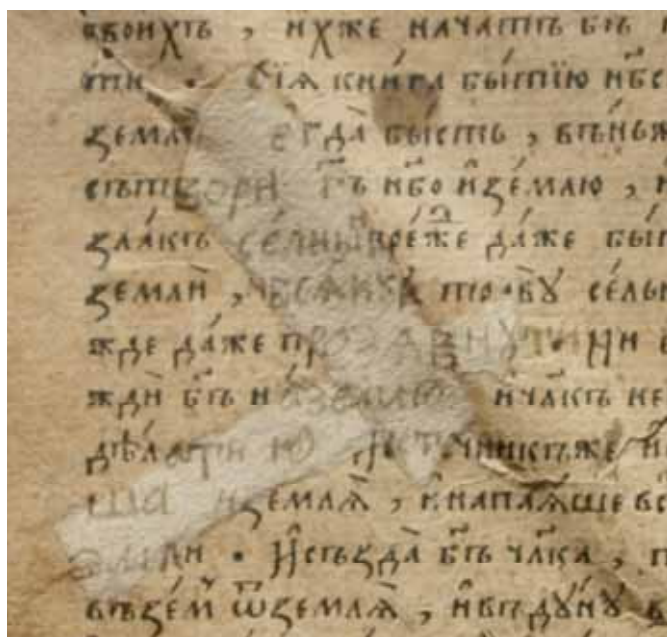 своихъ , ихже начатъ бг҃ъ
ти . Сїѧ кни́га бытїю нб҃се
землѧ е гда̀ бысть , въньже
сътвори бг҃ъ нб҃о и҆зе́млю ,
зла́къ се́лныи пре́же да́же бы
земли̂ , и҆всѧ́кꙋ траву се́лн
жде да́же прозѧбнути . Ни
жди бг҃ъ на̀землю и҆чл҃къ не
дѣ́лати ю . И҆сто́чникъже и҆
ша и҆земла̂ , и҆напаѧ́ше вс
земли . И҆създа̀ бг҃ъ чл҃ка ,
възе́м ѿземлѧ̂ , и҆въдꙋ́нꙋ в